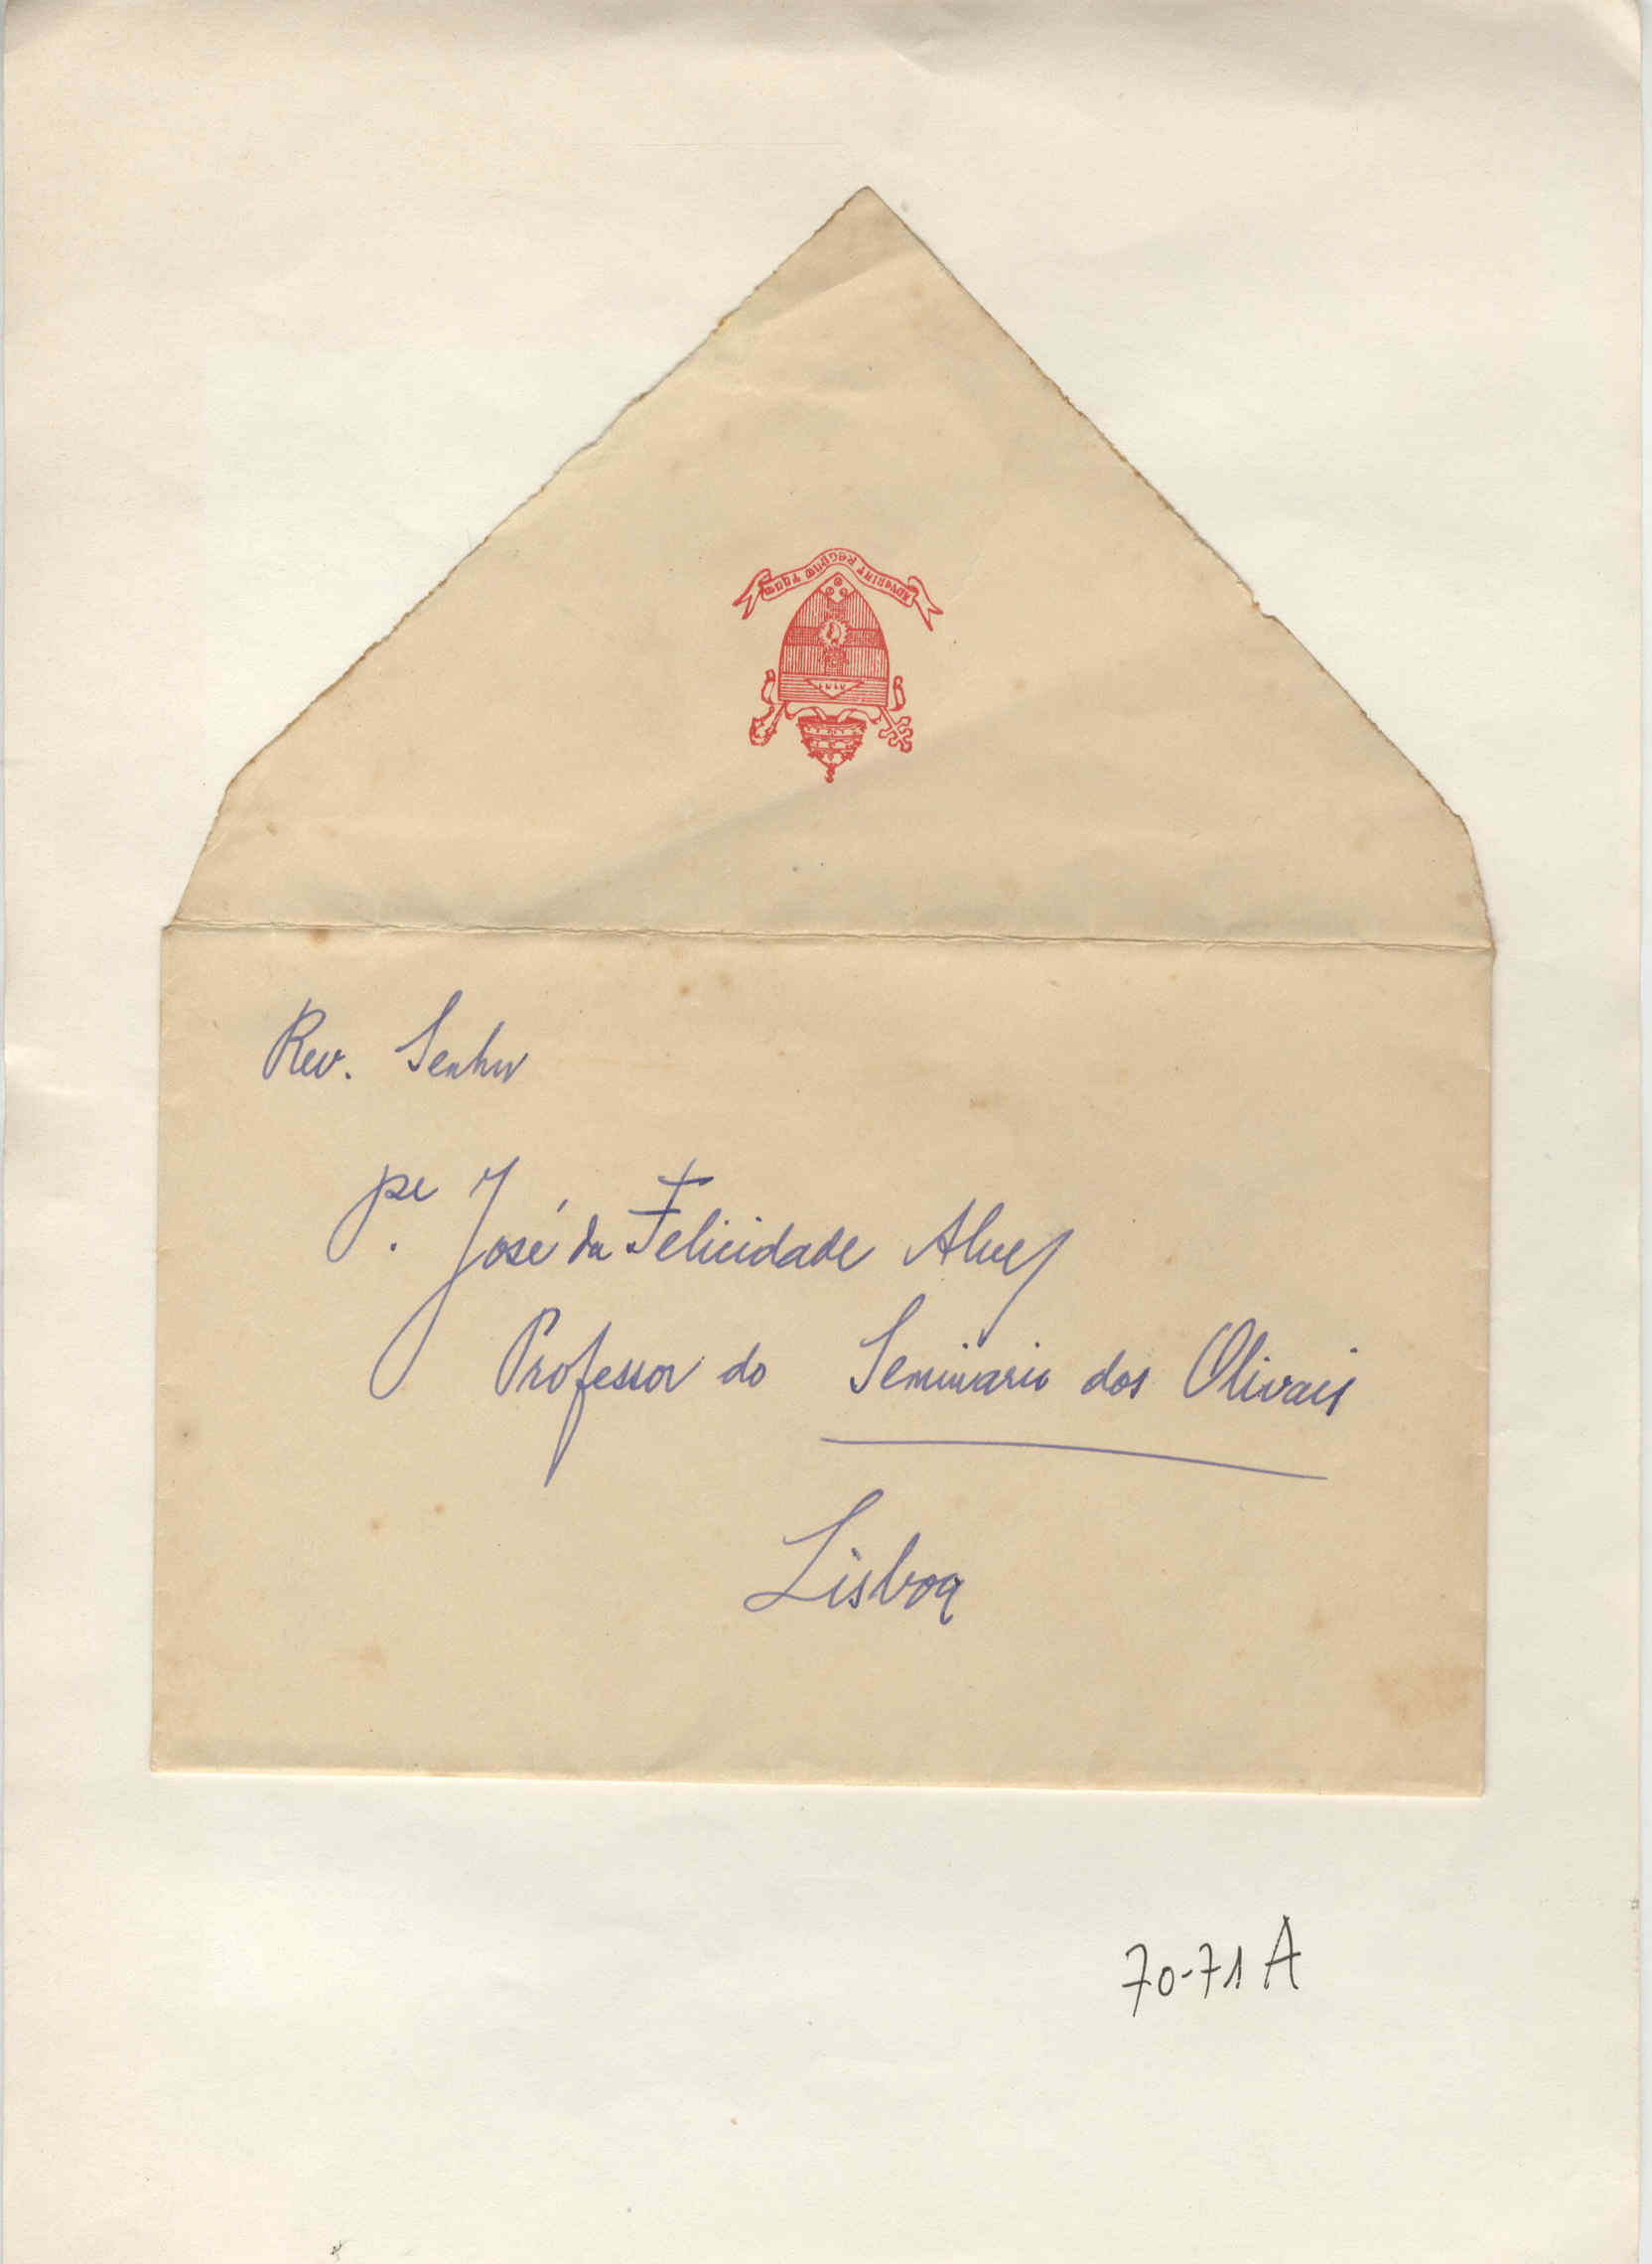 ADVENIAT REGNUM TUUM
Rev. Senhor
Pe. José da Felicidade Alves
Professor do Seminario dos Olivais
Lisboa
70-71 A